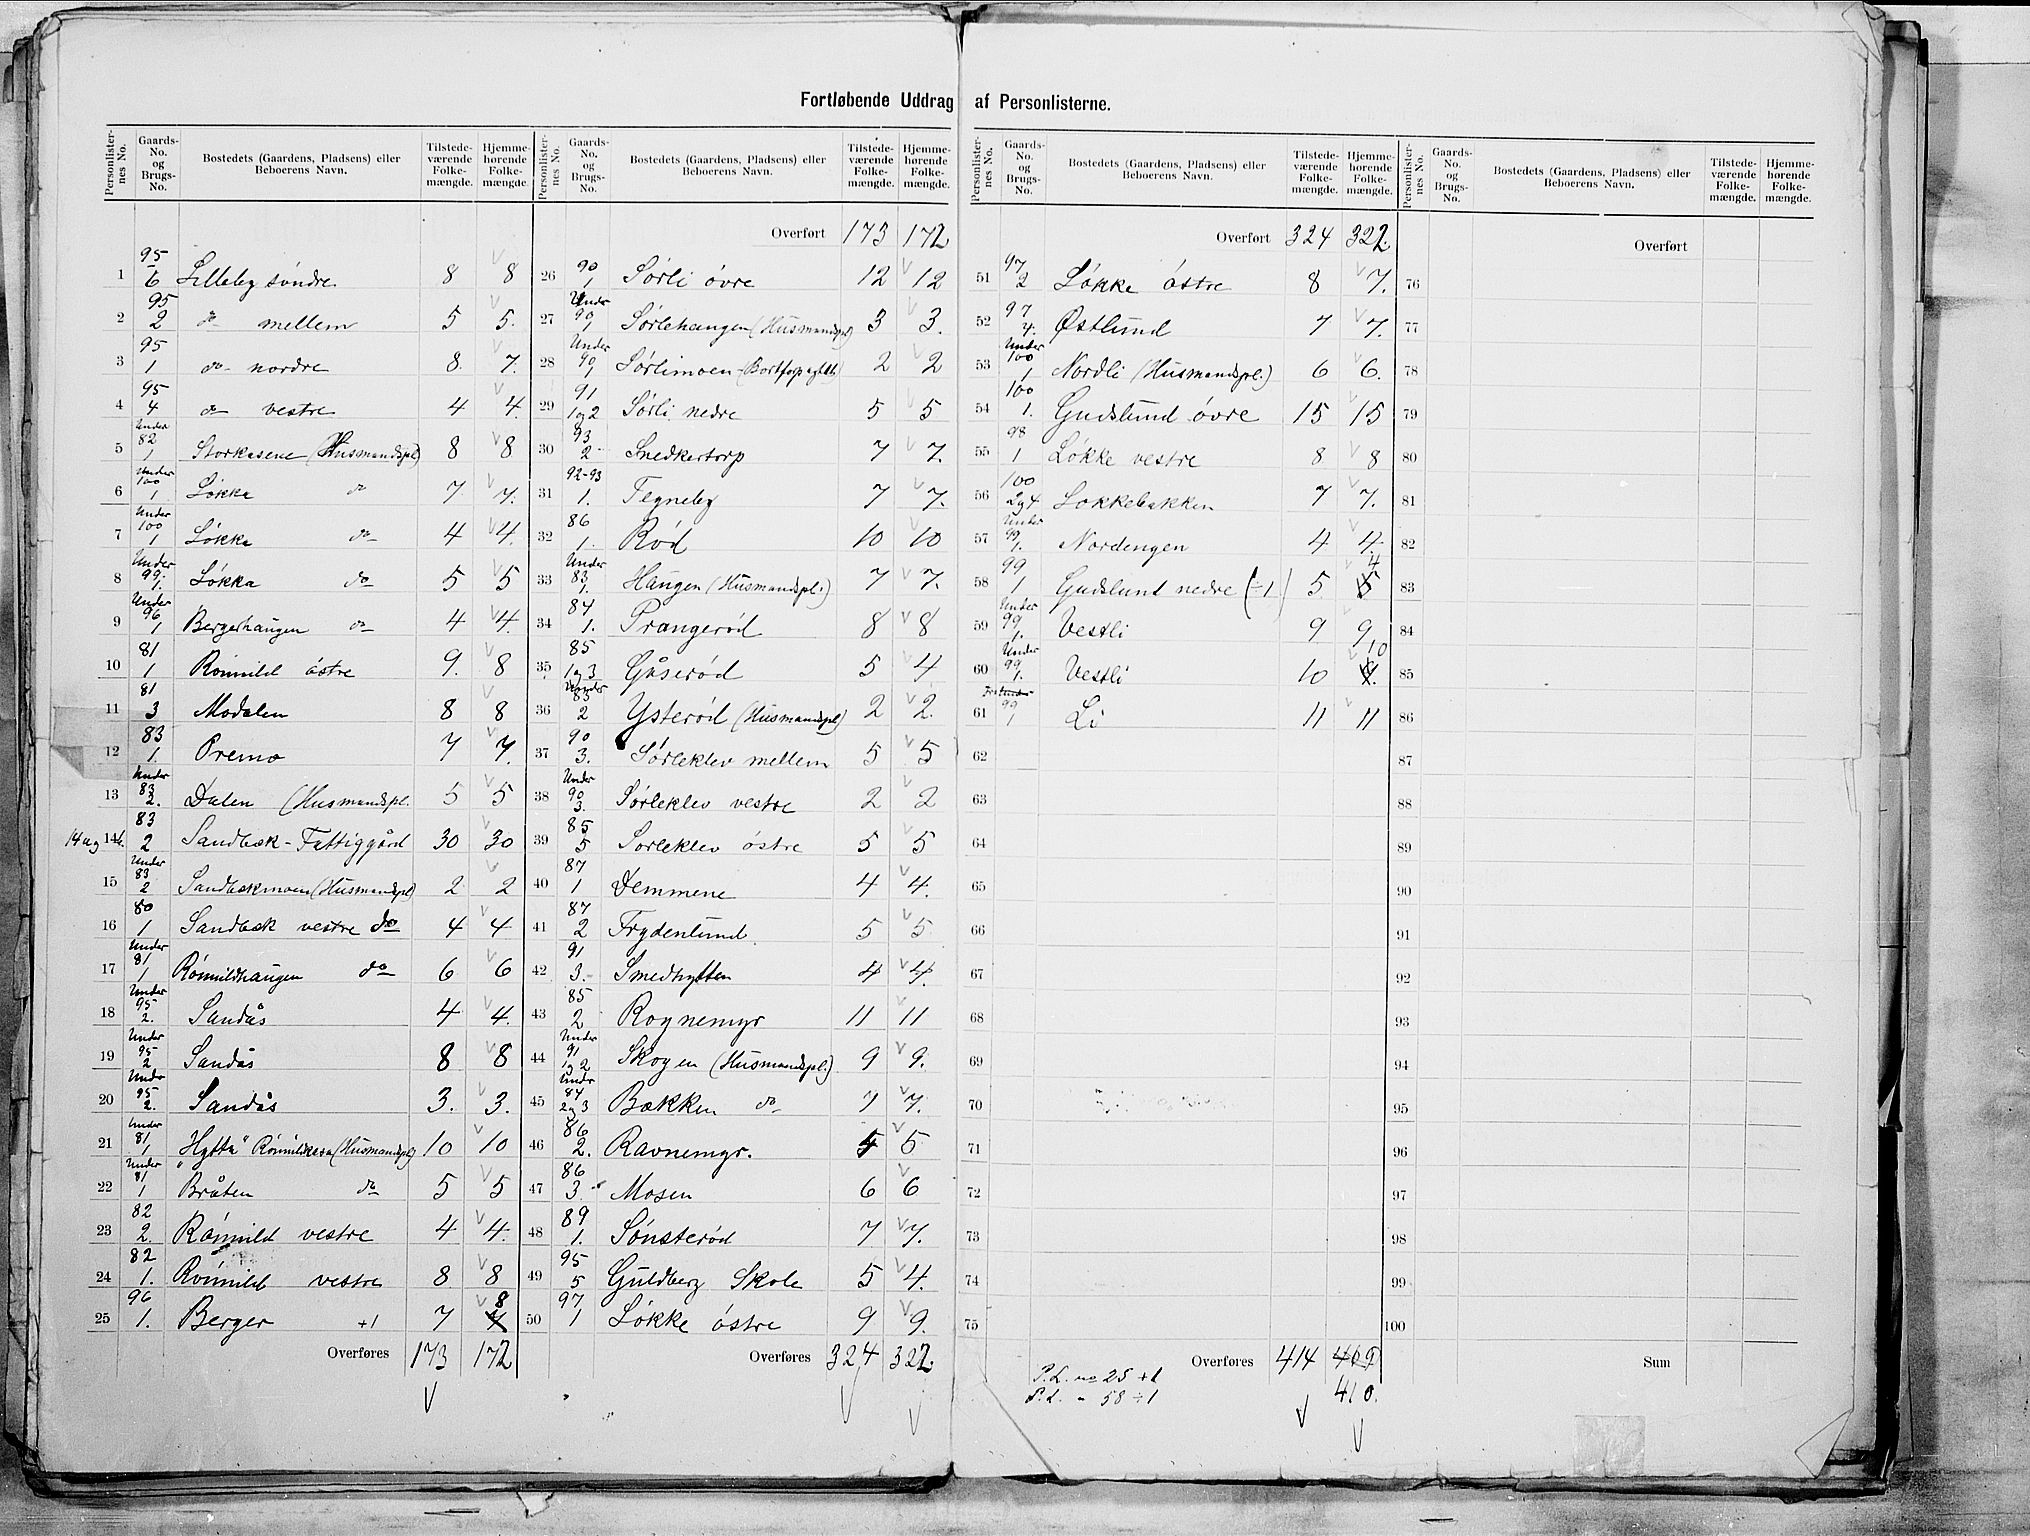 Fortløbende Uddrag af Personlisterne.
Personlisternes No. | Gaards-No. og Brugs-No. | Bostedets (Gaardens, Pladsens) eller Beboerens Navn. | Tilstedeværende Folkemængde. | Hjemmehørende Folkemængde.
1 95/6 Lilleby søndre 8 8
2 95/2 do mellem 5 5.
3 95/1 do nordre 8. 7.
4 95/4 do vestre 4 4.
5 Under 82/1 Storkasene (Husmandspl) 8 8
6 Under 100/1. Løkka do 7. 7.
7 Under 100/1 Løkka do 4 4.
8 Under 99/1. Løkka do 5 5
9 Under 96/1 Bergerhaugen do 4 4.
10 81/1 Römild östre 9. 8
11 81/3 Modalen 8 8
12 83/1. Premo 7 7.
13 Under 83/2. Dalen (Husmandspl. 5 5
14 og 14b. 83/2 Sandbæk-Fattiggård 30 30
15 Under 83/2 Sandbækmoen (Husmandspl) 2 2
16 80/1 Sandbæk vestre do 4 4
17 Under 81/1 Römildhaugen do 6 6
18 Under 95/2. Sandås 4 4.
19 Under 95/2 Sandås 8 8
20 Under 95/2. Sandås 3. 3.
21 Under 81/1 "Hytta" Römildkasa (Husmandspl) 10 10
22 Under 81/1 Bråten do 5 5
23 82/2. Römild vestre 4 4.
24 82/1. Römild vestre 8 8
25 96/1. Berger +1 7 8
Overføres 173 172
Overført 173 172
26 90/1 Sørli övre 12 12
27 Under 90/1 Sørlehaugen (Husmandspl) 3 3.
28 Under 90/1 Sørlimoen 2 2
29 91/1og2 Sørli nedre 5 5
30 93/2 Snedkertorp 7 7.
31 92-93/1. Tegneby 7 7.
32 86/1. Röd 10 10
33 Under 83/1. Haugen (Husmandspl.) 7 7.
34 84/1. Prangerød 8 8
35 85/1og3 Gåserød 5 4
36 Under 85/2 Ysterød (Husmandspl) 2 2.
37 90/3. Sørleklev mellem 5 5
38 Under 90/3. Sørleklev vestre 2 2
39 85/5 Sørleklev östre 5 5
40 87/1 Demmene 4 4.
41 87/2 Frydenlund 5 5
42 91/3. Smedhytten 4 4.
43 85/2 Rognemyr 11 11
44 Under 91/1og2 Skogen (Husmandspl.) 9 9.
45 Under 84/2og3 Bækken do 7 7.
46 86/2. Ravnemyr. 5 5
47 86/3. Mosen 6 6
48 89/1. Sønsterød 7 7.
49 95/5 Guldberg Skole 5 4.
50 97/1 Løkke östre 9 9.
Overføres 324 322.
Overført 324 322.
51 97/2 Løkke östre 8 7.
52 97/4. Østlund 7 7.
53 Under 100/1 Nordli (Husmandspl.) 6 6.
54 100/1. Gudslund övre 15 15
55 98/1 Løkke vestre 8 8
56 100/2og4 Løkkebakken 7 7.
57 Under 99/1. Nordengen 4 4.
58 99/1 Gudslund nedre (÷1) 5 5 4
59 Under 99/1. Vestli 9 9
60 Under 99/1. Vestli 10 10
61 99/1 Li 11 11
62
63
64
65
66
67
68
69
70
71
72
73
74
75
Overføres 414 409
410.
P.L. no 25 +1
P.L. " 58 ÷1
Overført
76
77
78
79
80
81
82
83
84
85
86
87
88
89
90
91
92
93
94
95
96
97
98
99
100
Sum